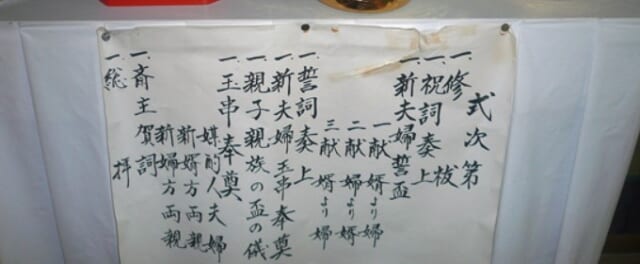 式次第
一、修祓
一、祝詞奏上
一、新夫婦誓盃
一献 婿より婦
二献 婦より婿
三献 婿より婦
一、誓詞奏上
一、新夫婦玉串奉奠
一、親子親族の盃の儀
一、玉串奉奠
媒酌人夫婦
新婿方両親
新婦方両親
一、斉主賀詞
一、総拝